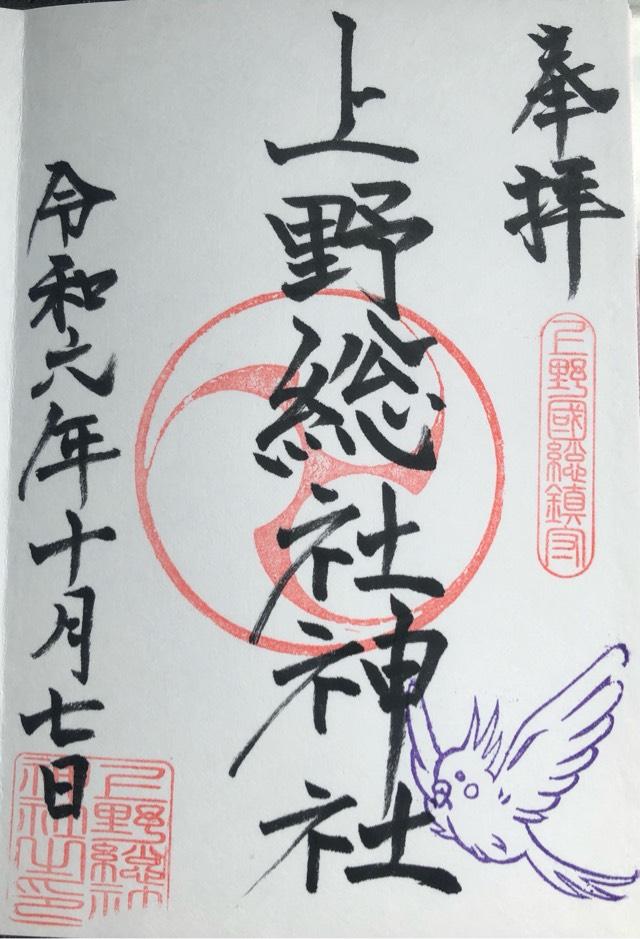 奉拝
上野國総鎮守
上野総社神社
令和六年十月七日
上野総社
神社之印